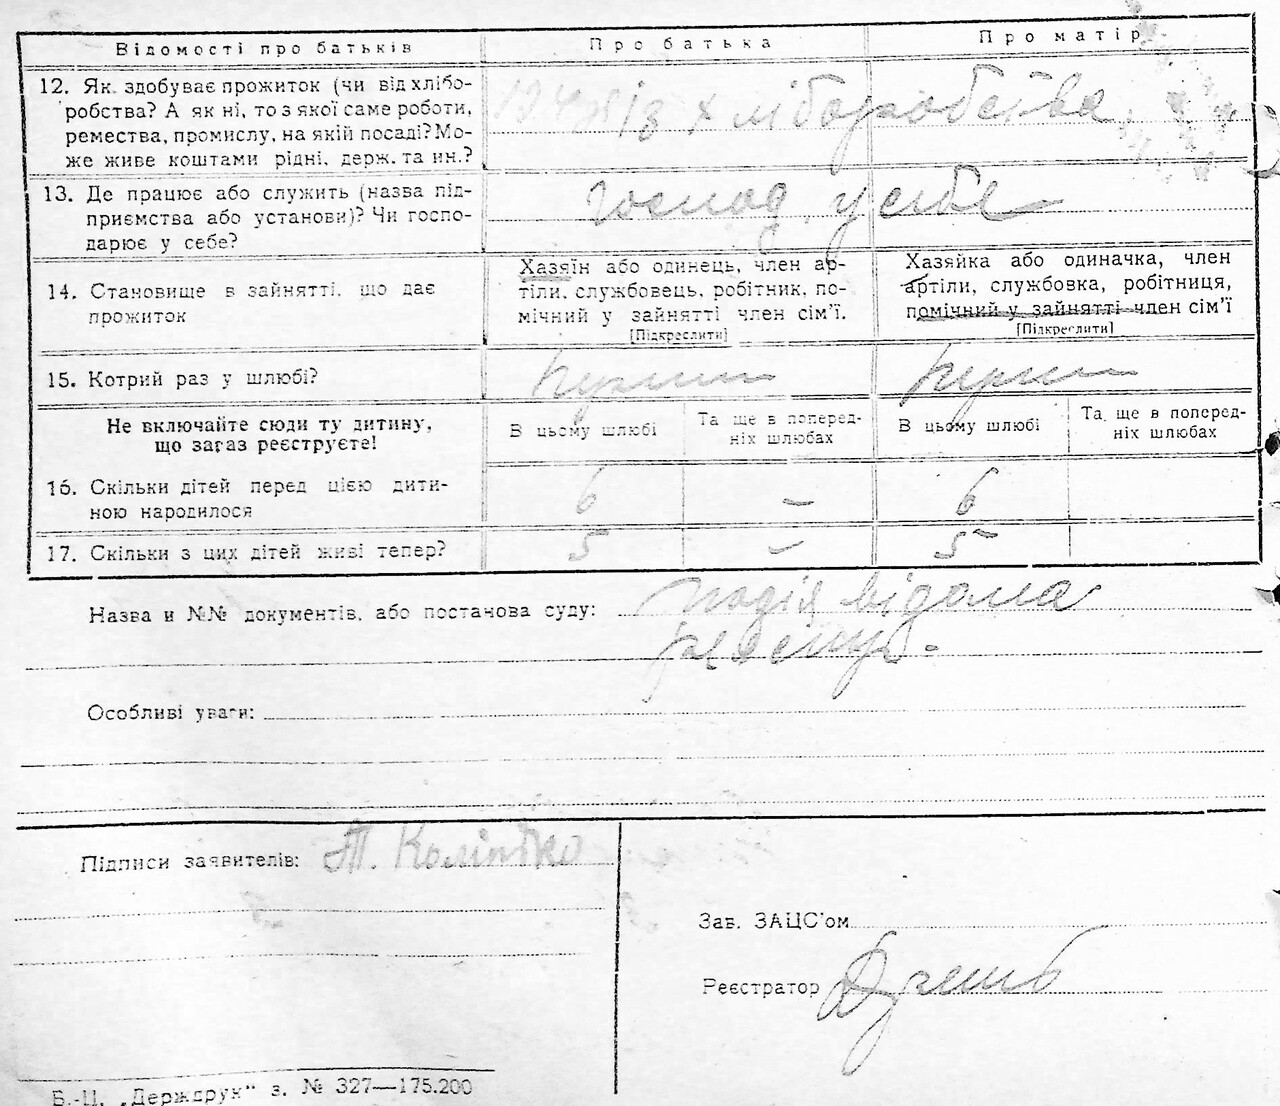 Відомості про батьків Про батька Про матір
12. Як здобуває прожиток (чи від хлібо-
робства? А як ні, то з якої саме роботи,
ремества, промислу, на якій посаді? Мо-
же живе коштами рідні, держ. та ин.?
із хліборобства
13. Де працює або служить (назва під-
приємства або установи)? Чи госпо-
дарює у себе?
Господ. у себе
14. Становище в зайнятті, що дає
прожиток
Хазяїн або одинець, член ар-
тіли, службовець, робітник, по-
мічний у зайнятті член сім'ї.
[Підкреслити]
Хазяйка або одиначка, член
артіли, службовка, робітниця,
помічний у зайнятті член сім'ї
[Підкреслити]
15. Котрий раз у шлюбі? перший перший
Не включайте сюди ту дитину,
що зараз реєструєте!
В цьому шлюбі
Та ще в поперед-
ніх шлюбах
В цьому шлюбі
Та ще в поперед-
ніх шлюбах
16. Скільки дітей перед цією дити-
ною народилося
6 – 6
17. Скільки з цих дітей живі тепер? 5 – 5
Назва и №№ документів, або постанова суду: подія відома
реєстр.
Особливі уваги:
Підписи заявителів: Т.
Зав. ЗАЦС'ом
Реєстратор
Б.-Ц. „Держдрук" з. № 327—175.200